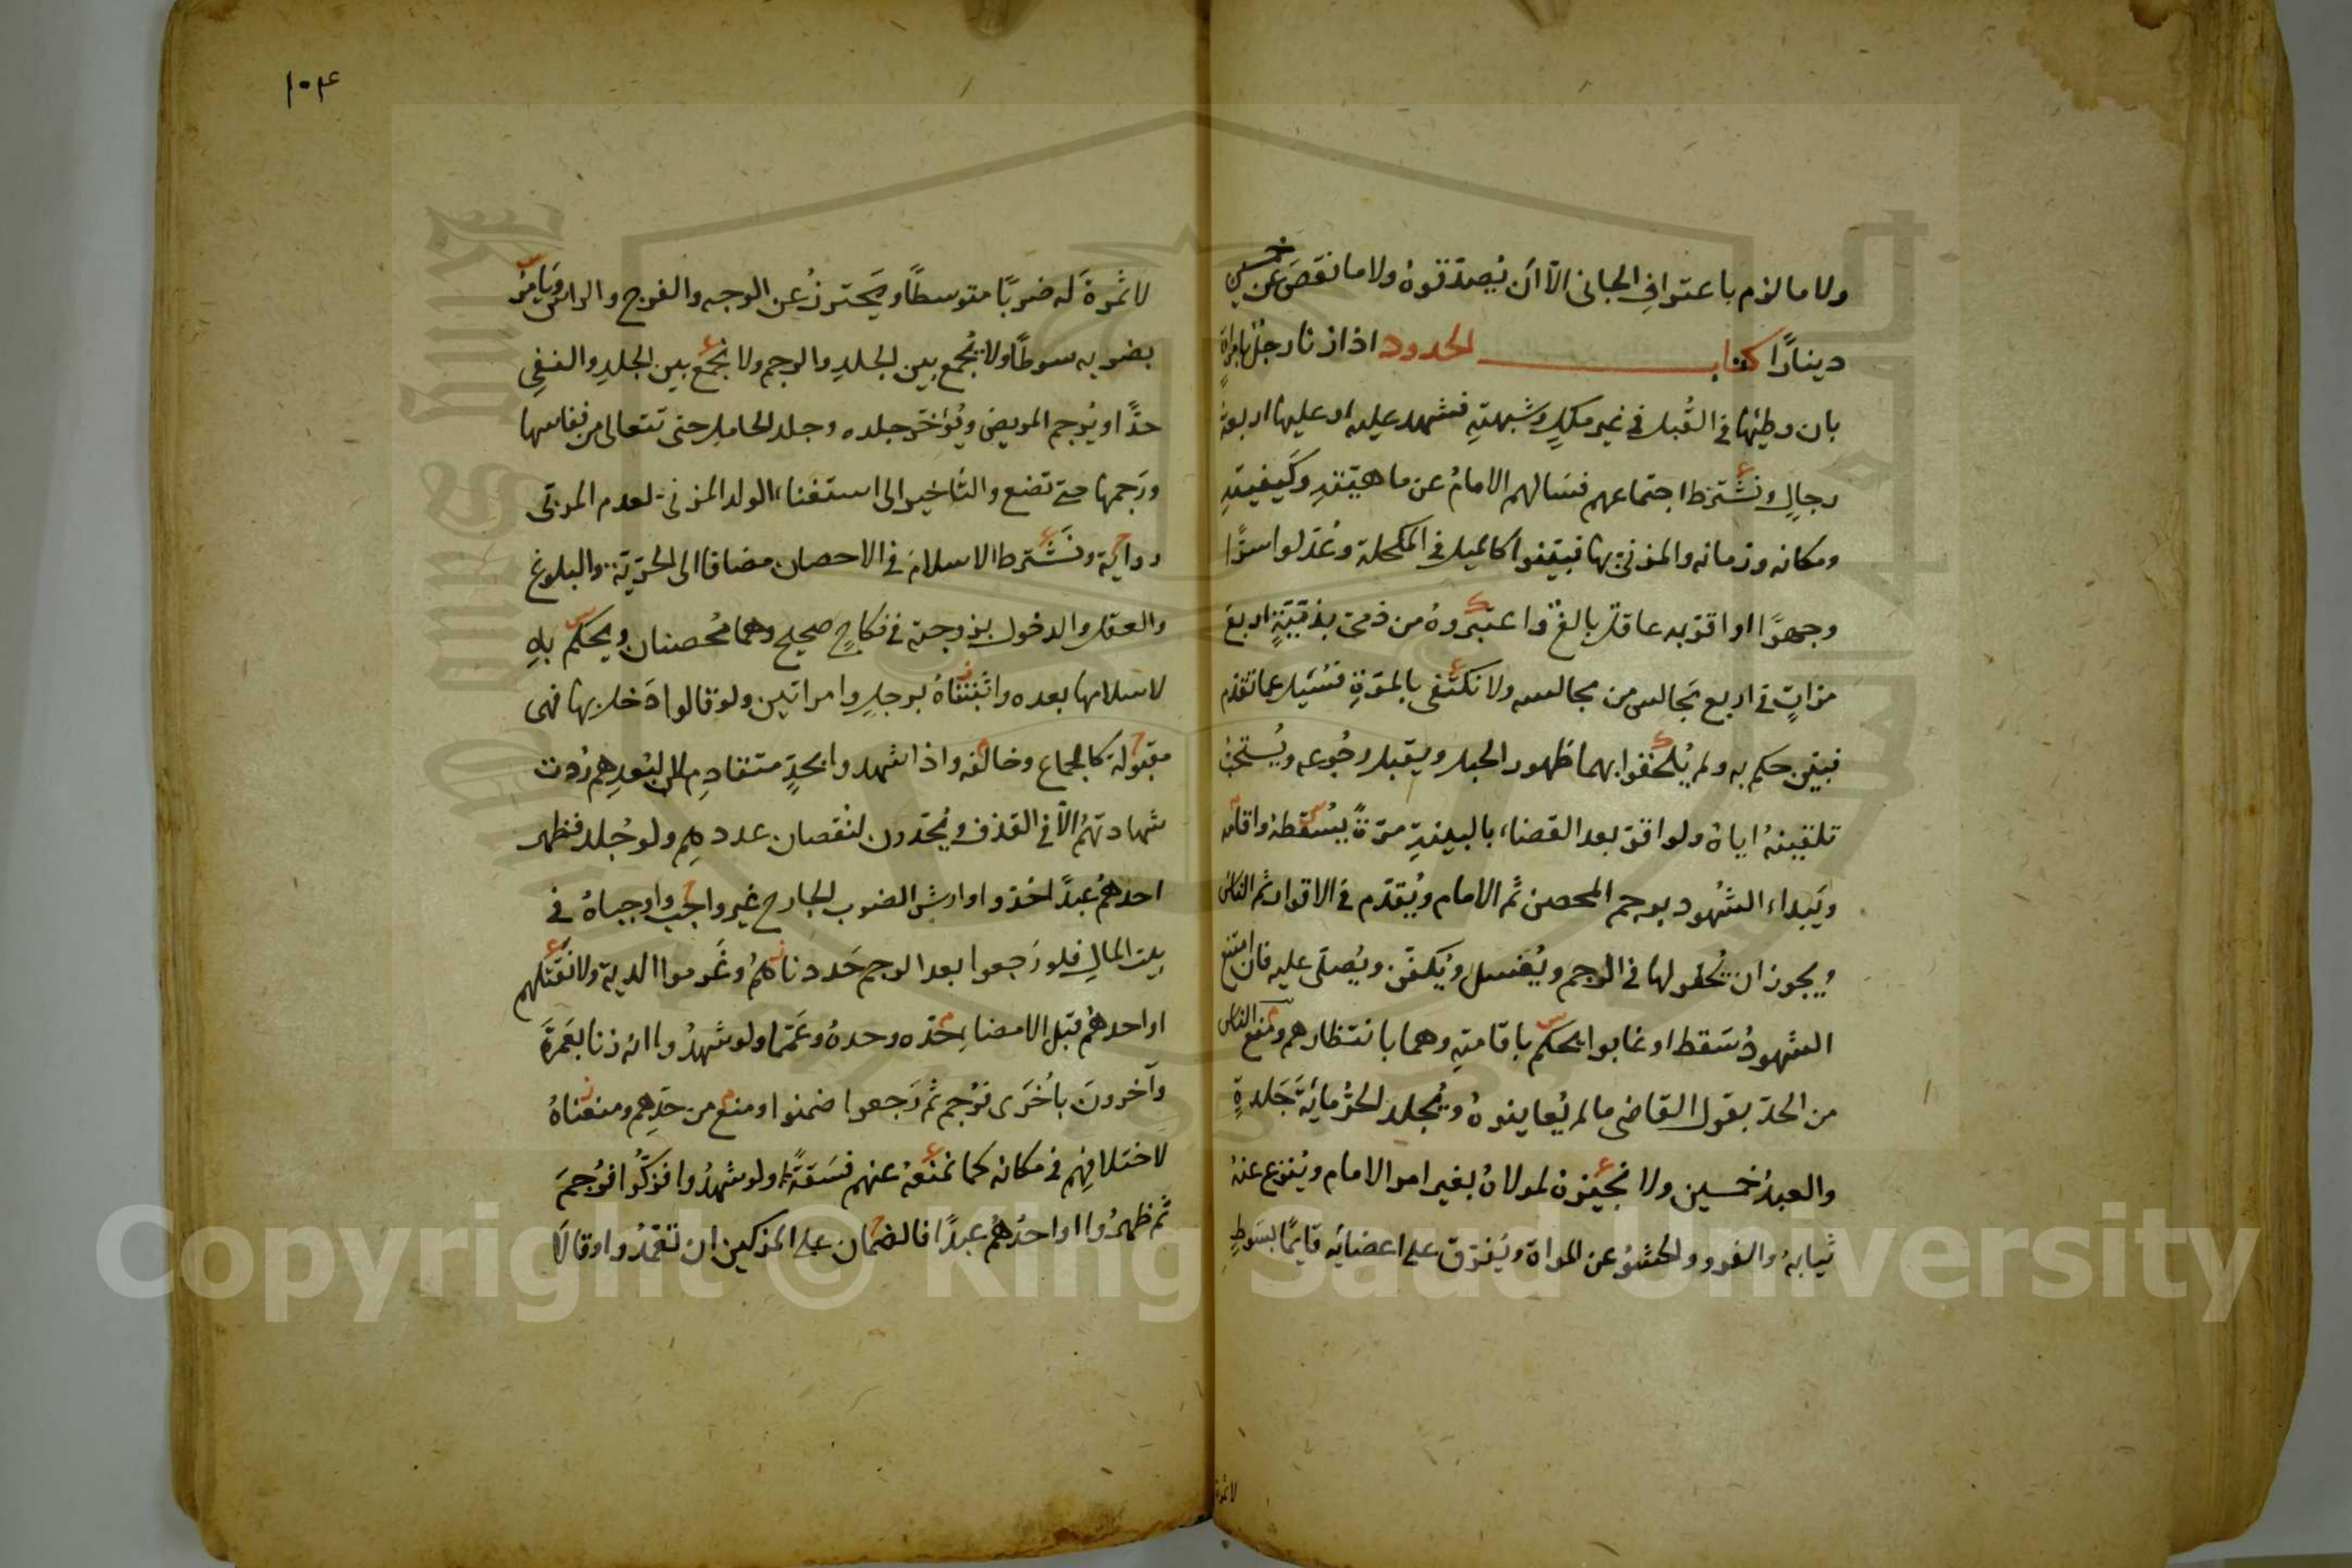 ولا ما لزم باعتراف الجاني الا ان يصدقوه ولا ما نقص عن خمسين
دينارا كتاب الحدود اذا زنا رجل بامراة
بان وطئها في القبل في غير ملك وشبهته فشهد عليه او عليها اربعة
رجال ونشترط اجتماعهم فسالهم الامام عن ماهيته وكيفيته
ومكانه وزمانه والمزني بها فبينوا كالميل في المكحلة وعدلوا سرا
وجهرا او اقر به عاقل بالغ واعتبروه من ذمي بذمية اربع
مرات في اربع مجالس من مجالسه ولا نكتفي بالمرة فسئل عما تقدم
فبين حكم به ولم يلحقوا بهما ظهور الحبل ويقبل رجوعه ويستحب
تلقينه اياه ولو اقر بعد القضاء بالبينة مرة يسقطه واقامه
ويبداء الشهود برجم المحصن ثم الامام ويقدم في الاقرار ثم الناس
ويجوز ان يحفر لها في الرجم ويغسل ويكفن ويصلى عليه فان امتنع
الشهود سقط او غابوا يحكم باقامته وهما بانتظارهم ومنع الناس
من الحد بقول القاضي ما لم يعاينوه ويجلد الحر مائة جلدة
والعبد خمسين ولا نجيزه لمولاه بغير امر الامام وينزع عنه
ثيابه والفرو والحشو عن المراة ويفرق على اعضائه قايما بسوط
لا ثمرة
١٠٤
لا ثمرة له ضربا متوسطا ويحترز عن الوجه والفرج والراس ويامر
بضربه سوطا ولا يجمع بين الجلد والرجم ولا نجمع بين الجلد والنفي
حدا ويرجم المريض ويؤخر جلده وجلد الحامل حتى تتعالى من نفاسها
ورجمها حتى تضع والتاخير الى استغناء الولد المزني لعدم المربي
رواية ونشترط الاسلام في الاحصان مضافا الى الحرية والبلوغ
والعقل والدخول بزوجته في نكاح صحيح وهما محصنان ويحكم به
لاسلامها بعده واثبتناه برجل وامراتين ولو قالوا دخل بها فهي
مقبولة كالجماع وخالفه واذا شهدوا بحد متقادم لا لبعدهم ردت
شهادتهم الا في القذف ويحدون لنقصان عددهم ولو جلد فظهر
احدهم عبدا اخذوا وارش الضرب الجارح غير واجب واوجباه في
بيت المال فلو رجعوا بعد الرجم حددناهم وغرموا الدية ولا نقتلهم
او احدهم قبل الامضاء حده وحده وعمما ولو شهدوا انه زنا بعمرة
وآخرون باخرى فرجم ثم رجعوا ضمنوا ومنع من حدهم ومنعناه
لاختلافهم في مكانه كما نمنعه عنهم فسقة ولو شهدوا فزكوا فرجم
ثم ظهروا او احدهم عبدا فالضمان على المزكين ان تعمدوا وقالا
Copyright © King Saud University